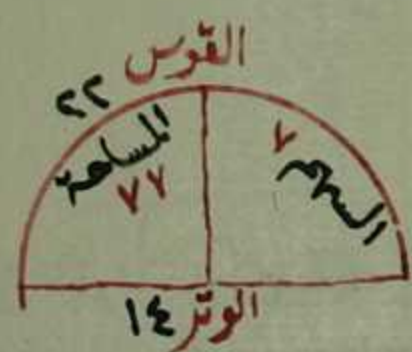 القوس
٢٢
المساحة
٧٧
السهم
٧
الوتر ١٤